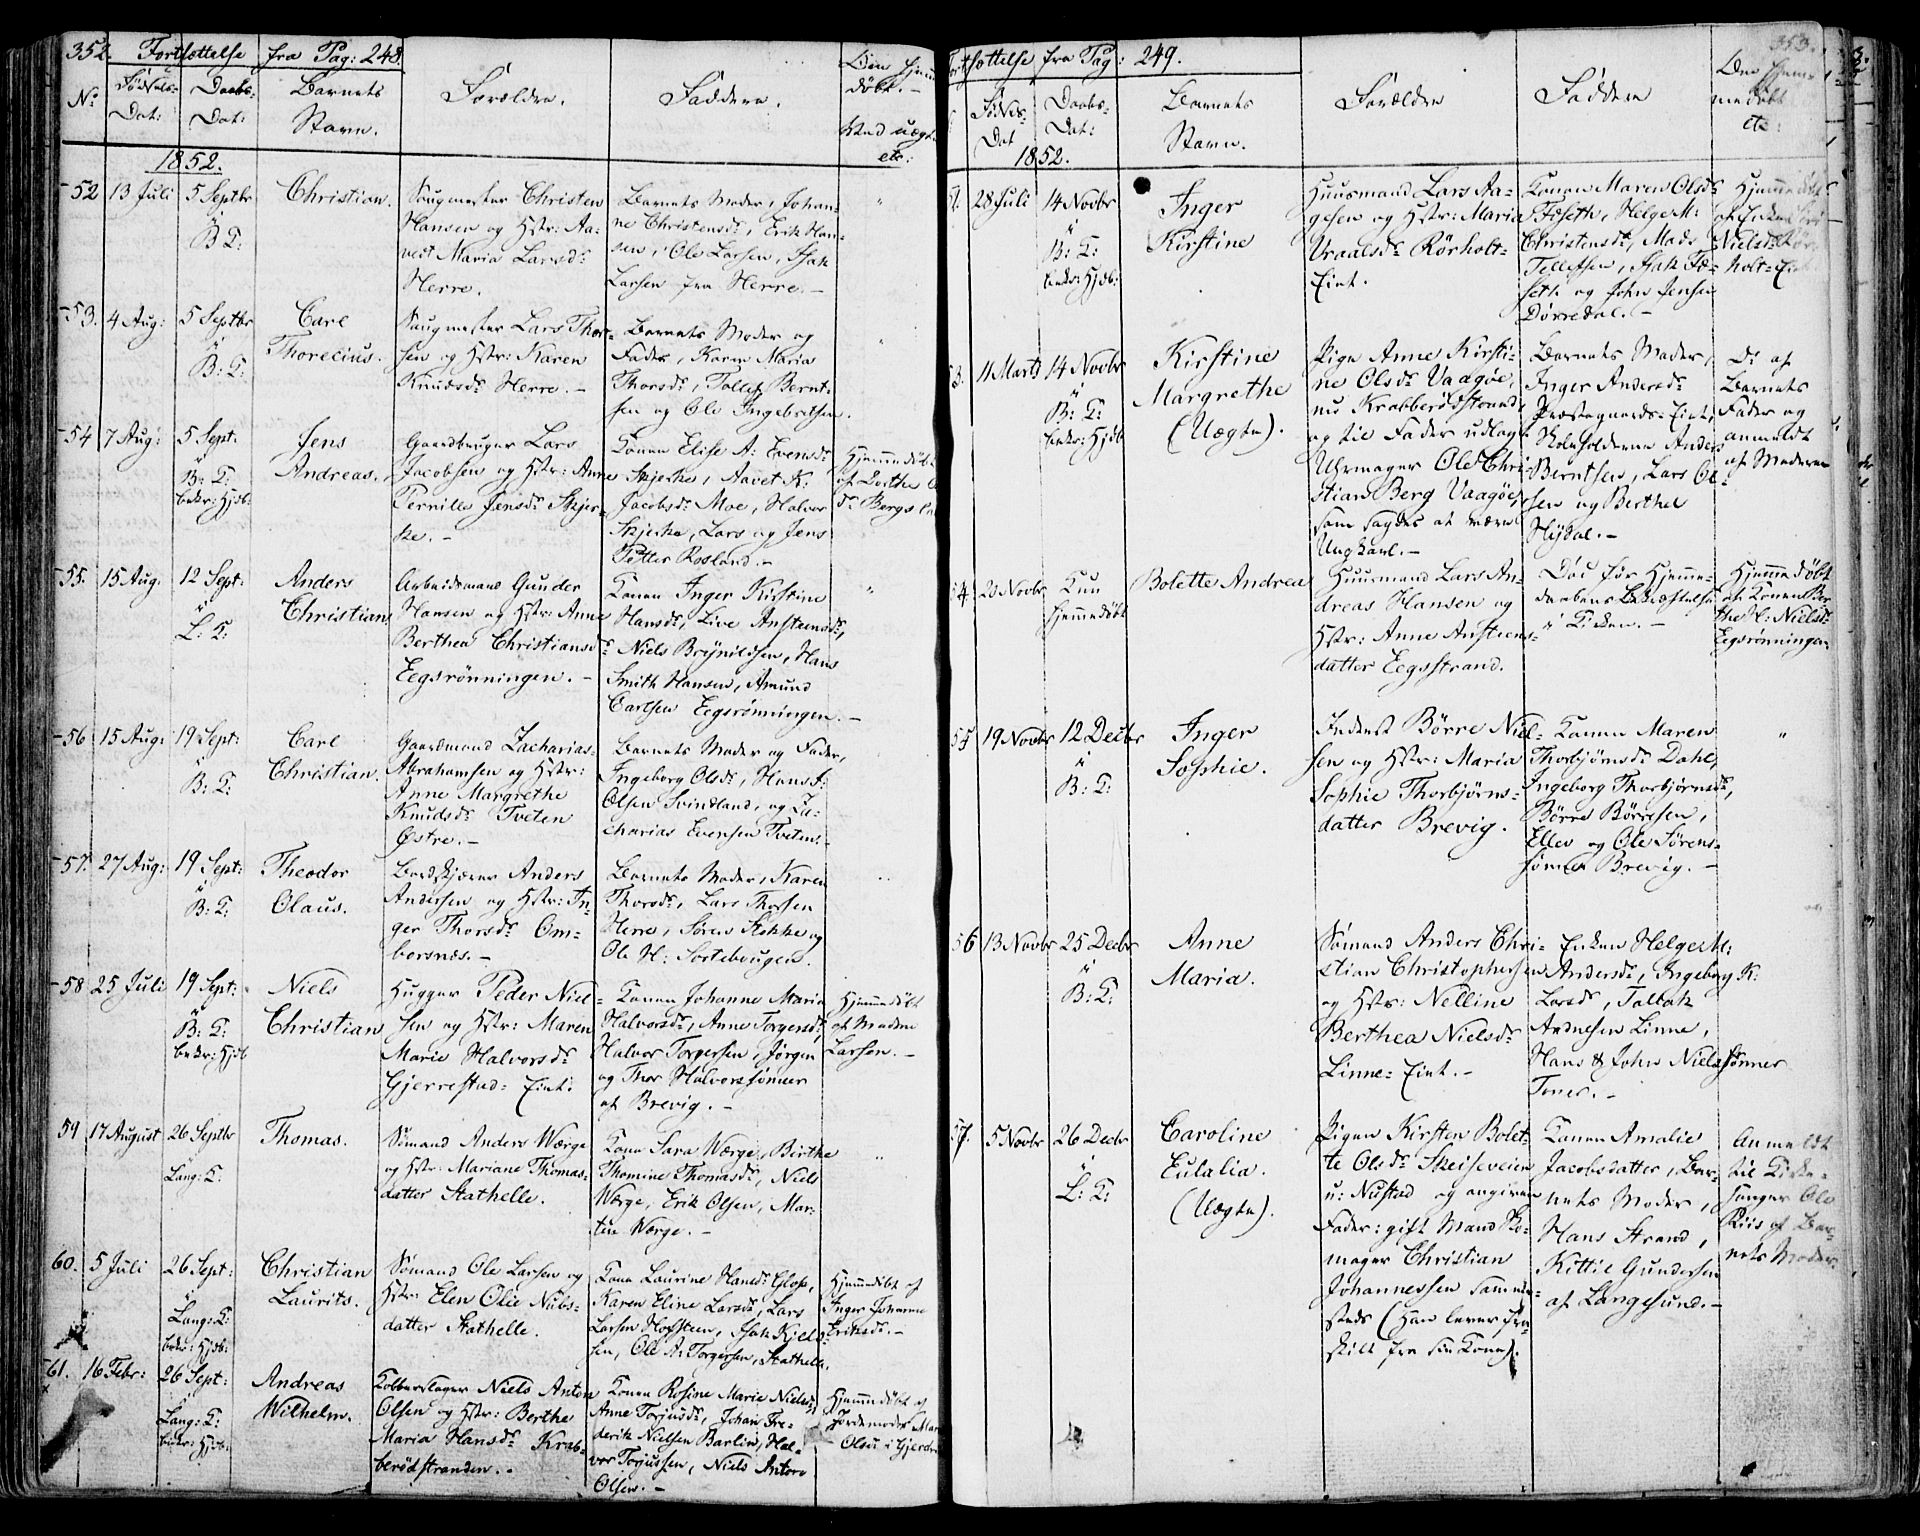 352. Fortsættelse fra Pag: 248.
No
Fødsels-
Dat:
Daabs-
Dat:
Barnets
Navn.
Forældre.
Faddere.
Om hjemme
døbt. -
Hvad uægte
etc:
1852.
52 13 Juli 5 Septbr
i
B. K:
Christian.
Saugmester Christen
Hansen og Hstr: Aa-
vet Maria Larsdr
Herre.
Barnets Moder, Johan-
ne Christensdr, Erik Han-
sen, Ole Larsen, Isak
Larsen fra Herre. -
"
53. 4 Aug: 5 Septbr
i
B: K:
Carl
Thorecius.
Saugmester Lars Thor-
sen og Hstr: Karen
Knudsdr Herre. -
Barnets Moder og
Fader, Karen Maria
Thorsdr, Tollef Bernt-
sen og Ole Ingebretsen.
"
54 7 Aug: 5 Sept:
i
B: K:
bekr: Hjdb:
Jens
Andreas.
Gaardbruger Lars
Jacobsen og Hstr: Anne
Pernille Jensdr Skjer-
ke. -
Konen Elise A: Evensdr
Skjerke, Aavet K.
Jacobsdr Moe, Halvor
Skjerke, Lars og Jens
Petter Rosland. -
Hjemmedøbt
af Dorthe
dr Bergs
55. 15 Aug. 12 Sept:
i
L: K:
Anders
Christian
Arbeidsmand Gunder
Hansen og Hstr: Anne
Berthea Christiansdr
Eegsrønningen. -
Konen Inger Kirstine
Hansdr, Live Anstensdr,
Niels Brynildsen, Hans
Smith Hansen, Amund
Carlsen Eegsrønningen. -
"
56 15 Aug: 19 Sept:
i
B: K:
Carl
Christian.
Gaardmand Zacharias
Abrahamsen og Hstr:
Anne Margrethe
Knudsdr Tveten
Østre. -
Barnets Moder og Fader,
Ingeborg Olsdr, Hans A:
Olsen Svindland, og Za-
charias Evensen Tveten. -
57. 27 Aug: 19 Sept:
i
B: K:
Theodor
Olaus.
Bordskjærer Anders
Andersen og Hstr: In-
ger Thorsdr Om-
borsnæs. -
Barnets Moder, Karen
Thorsdr, Lars Thorsen
Herre, Søren Stokke og
Ole H: Sortebougen.
"
58 25 Juli 19 Sept:
i
B: K:
bekr: Hjdb
Niels
Christian
Hugger Peder Niel-
sen og Hstr: Maren
Marie Halvorsdr
Gjerrestad-Eint.
Konen Johanne Maria
Halvorsdr, Anne Torgersdr,
Halvor Torgersen, Jørgen
og Thor Halvorssønner
af Brevig. -
Hjemmedøbt
af Madme
Larsen. -
59 17 August 26 Septbr
i
Lang: K:
Thomas.
Sømand Anders Wærge
og Hstr: Mariane Thomas-
datter Stathelle.
Kone Sara Wærge, Birthe
Thomine Thomasdr, Niels
Wærge, Erik Olsen, Mar-
tin Wærge. -
"
60. 5 Juli 26 Sept:
i
Lang: K:
bekr: Hjdb:
Christian
Laurits.
Sømand Ole Larsen og
Hstr: Elen Olie Nubs-
datter Stathelle.
Kone Laurine Hansdr Glosø,
Karen Eline Larsdr, Lars
Larsen Hofsteen, Isak Kjels-
sen, Ole A: Torgersen, Stathelle.
Hjemmedøbt af
Inger Johanne
Eriksdr. -
61. 16 Febr: 26 Sept:
i
Lang: K:
bekr: Hjdb:
Andreas
Wilhelm.
Kobberslager Niels Anton
Olsen og Hstr: Berthe
Maria Hansdr Krab-
berødstranden. -
Konen Rosine Marie Nielsdr,
Anne Torjusdr, Johan Fre-
derik Nielsen Barlin, Hal-
vor Torjussen, Niels Anton
Olsen. -
Hjemmedøbt af
Jordemoder
Olsen i Gjerde
Fortsættelse fra Pag: 249.
353.
Fødsels-
Dat
Daabs-
Dat:
Barnets
Navn.
Forældre
Faddere
Om hjem-
medøbt
etc:
1852.
28 Juli 14 Novbr
i
B: K:
bekr: Hjdb:
Inger
Kirstine
Huusmand Lars Aa-
gesen og Hstr: Maria
Vraalsdr Rørholt-
Eint.
Konen Maren Olsdr
Foseth, Helge M:
Christensdr, Mads
Tellefsen, Isak Fo-
seth og John Jensen
Dørredal. -
Hjemmedøbt
af Enken
Nielsdr Rør-
holt-Eint
53. 11 Marts 14 Novbr
i
B: K:
bekr: Hjdb
Kirstine
Margrethe
(Uægte).
Pige Anne Kirsti-
ne Olsdr Vaagøe,
nu Krabberødstrand,
og til Fader udlagt
Uhrmager Ole Chri-
stian Berg Vaagøe,
som sagdes at være
Ungkarl. -
Barnets Moder,
Inger Andersdr
Præstegaards-Eint,
Skoleholderne Anders
Berntsen, Lars Ol-
sen og Berthel
Hydal. -
Do af
Barnets
Fader og
anmeldt
af Moderen
54. 20 Novbr Kun
hjemmedøbt
Bolette Andrea
Huusmand Lars An-
dreas Hansen og
Hstr: Anne Anstens-
datter Eegsstrand.
Død før Hjemme-
daabens Bekræftelse
i Kirken. -
Hjemmedøbt
af Konen Ber
the L: Nielsdr
Eegsrønningen
55 19 Novbr 12 Decbr
i
B: K:
Inger
Sophie.
Inderst Børre Niel-
sen og Hstr: Maria
Sophie Thorbjørns-
datter Brevig.
Konen Maren
Thorbjørnsdr Dahl,
Ingeborg Thorbjørnsdr,
Børre Børresen,
Ellev og Ole Sørens-
sønner Brevig. -
"
56 13 Novbr 25 Decbr
i
B: K:
Anne
Maria.
Sømand Anders Chri-
stian Christophersen
og Hstr: Nelline
Berthea Nielsdr
Linne-Eint. -
Enken Helge M:
Andersdr, Ingeborg K:
Larsdr, Tallak
Andresen Linne,
Hans & John Nielssønner
Toner. -
57. 5 Novbr 26 Decbr
i
L: K:
Caroline
Eulalia.
(Uægte).
Pigen Kirsten Bolet-
te Olsdr Skeiseveien
u: Nustad og angiven
Fader: gift Mand Sko-
mager Christian
Johannessen sammes-
steds (Han lever fra-
skilt fra sin Kone).
Konen Amalie
Jacobsdatter, Bar-
nets Moder,
Hans Strand,
Kittil Gundersen
af Langesund. -
Anmeldt
til Kirke-
sanger Ole
Riis af Bar-
nets Moder